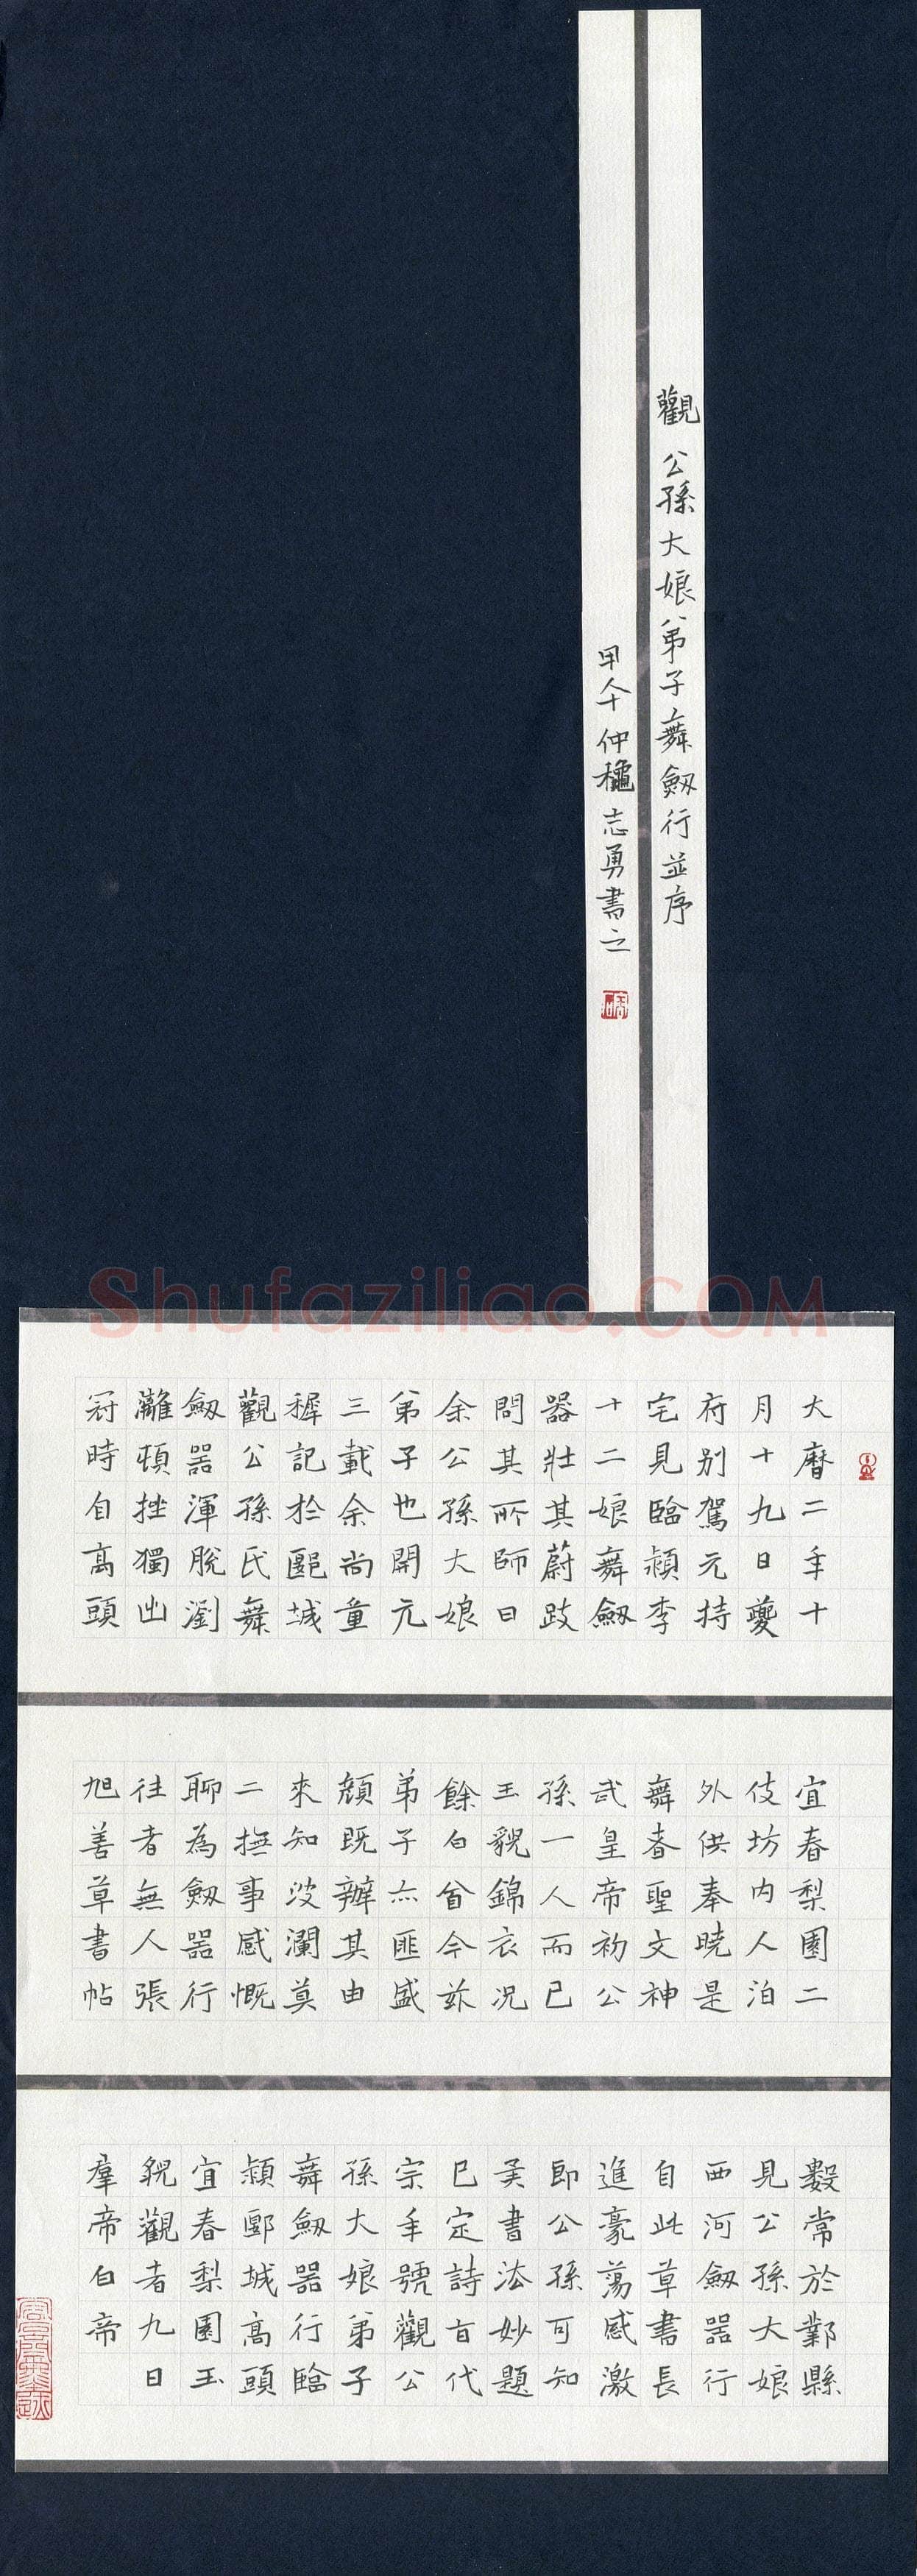 觀公孫大娘弟子舞劒行並序
甲午仲龝志勇書之
Shufaziliao.COM
大曆二年十
月十九日夔
府别駕元持
宅見臨潁李
十二娘舞劒
器壯其蔚跂
問其所師曰
余公孫大娘
弟子也開元
三載余尚童
穉記於郾城
觀公孫氏舞
劒器渾脫瀏
灕頓挫獨出
冠時自高頭
宜春梨園二
伎坊内人泊
外供奉曉是
舞者聖文神
武皇帝初公
孫一人而已
玉貌錦衣況
餘白首今茲
弟子亦匪盛
顏既辨其由
來知波瀾莫
二撫事感慨
聊為劒器行
往者無人張
旭善草書帖
數常於鄴縣
見公孫大娘
西河劒器行
自此草書長
進豪蕩感激
即公孫可知
矣書法妙題
已定詩百代
宗年號觀公
孫大娘弟子
舞劒器行臨
潁郾城高頭
宜春梨園玉
貌觀者九日
羣帝白帝